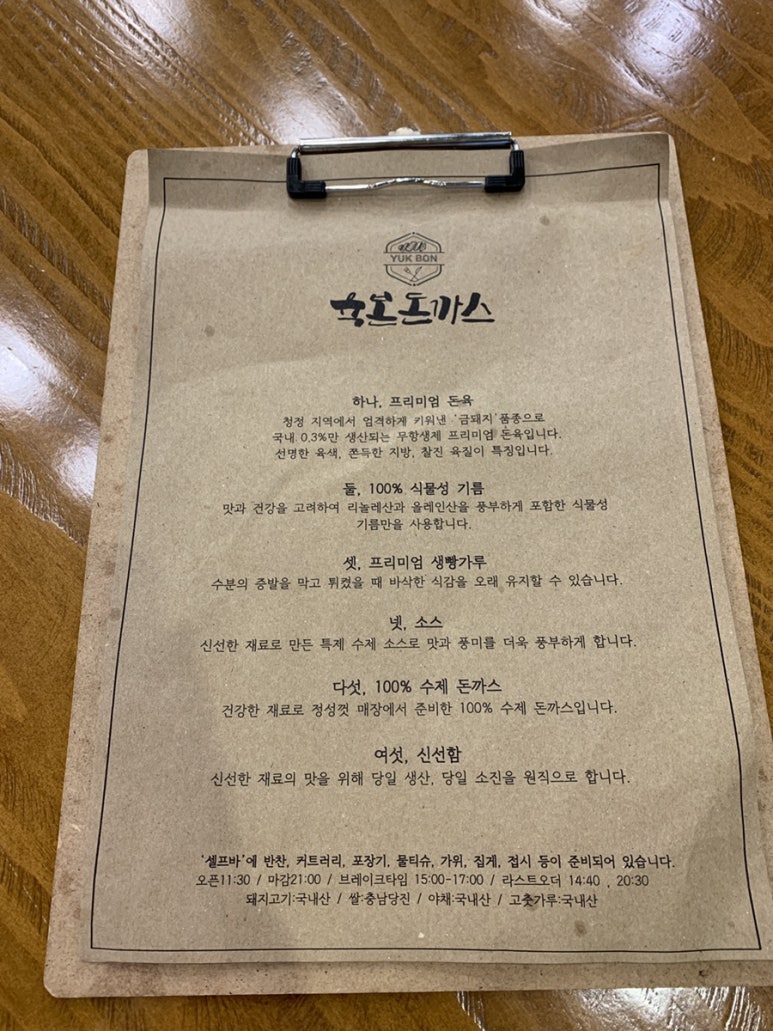 YUK BON
육본돈까스
하나, 프리미엄 돈육
청정 지역에서 엄격하게 키워낸 '금돼지'품종으로
국내 0.3%만 생산되는 무항생제 프리미엄 돈육입니다.
선명한 육색, 쫀득한 지방, 찰진 육질이 특징입니다.
둘, 100% 식물성 기름
맛과 건강을 고려하여 리놀레산과 올레인산을 풍부하게 포함한 식물성
기름만을 사용합니다.
셋, 프리미엄 생빵가루
수분의 증발을 막고 튀켰을 때 바삭한 식감을 오래 유지할 수 있습니다.
넷, 소스
신선한 재료로 만든 특제 수제 소스로 맛과 풍미를 더욱 풍부하게 합니다.
다섯, 100% 수제 돈까스
건강한 재료로 정성껏 매장에서 준비한 100% 수제 돈까스입니다.
여섯, 신선함
신선한 재료의 맛을 위해 당일 생산, 당일 소진을 원직으로 합니다.
'셀프바'에 반찬, 커트러리, 포장기, 물티슈, 가위, 집게, 접시 등이 준비되어 있습니다.
오픈11:30 / 마감21:00 / 브레이크타임 15:00-17:00 / 라스트오더 14:40 , 20:30
돼지고기:국내산 / 쌀:충남당진 / 야채:국내산 / 고춧가루:국내산